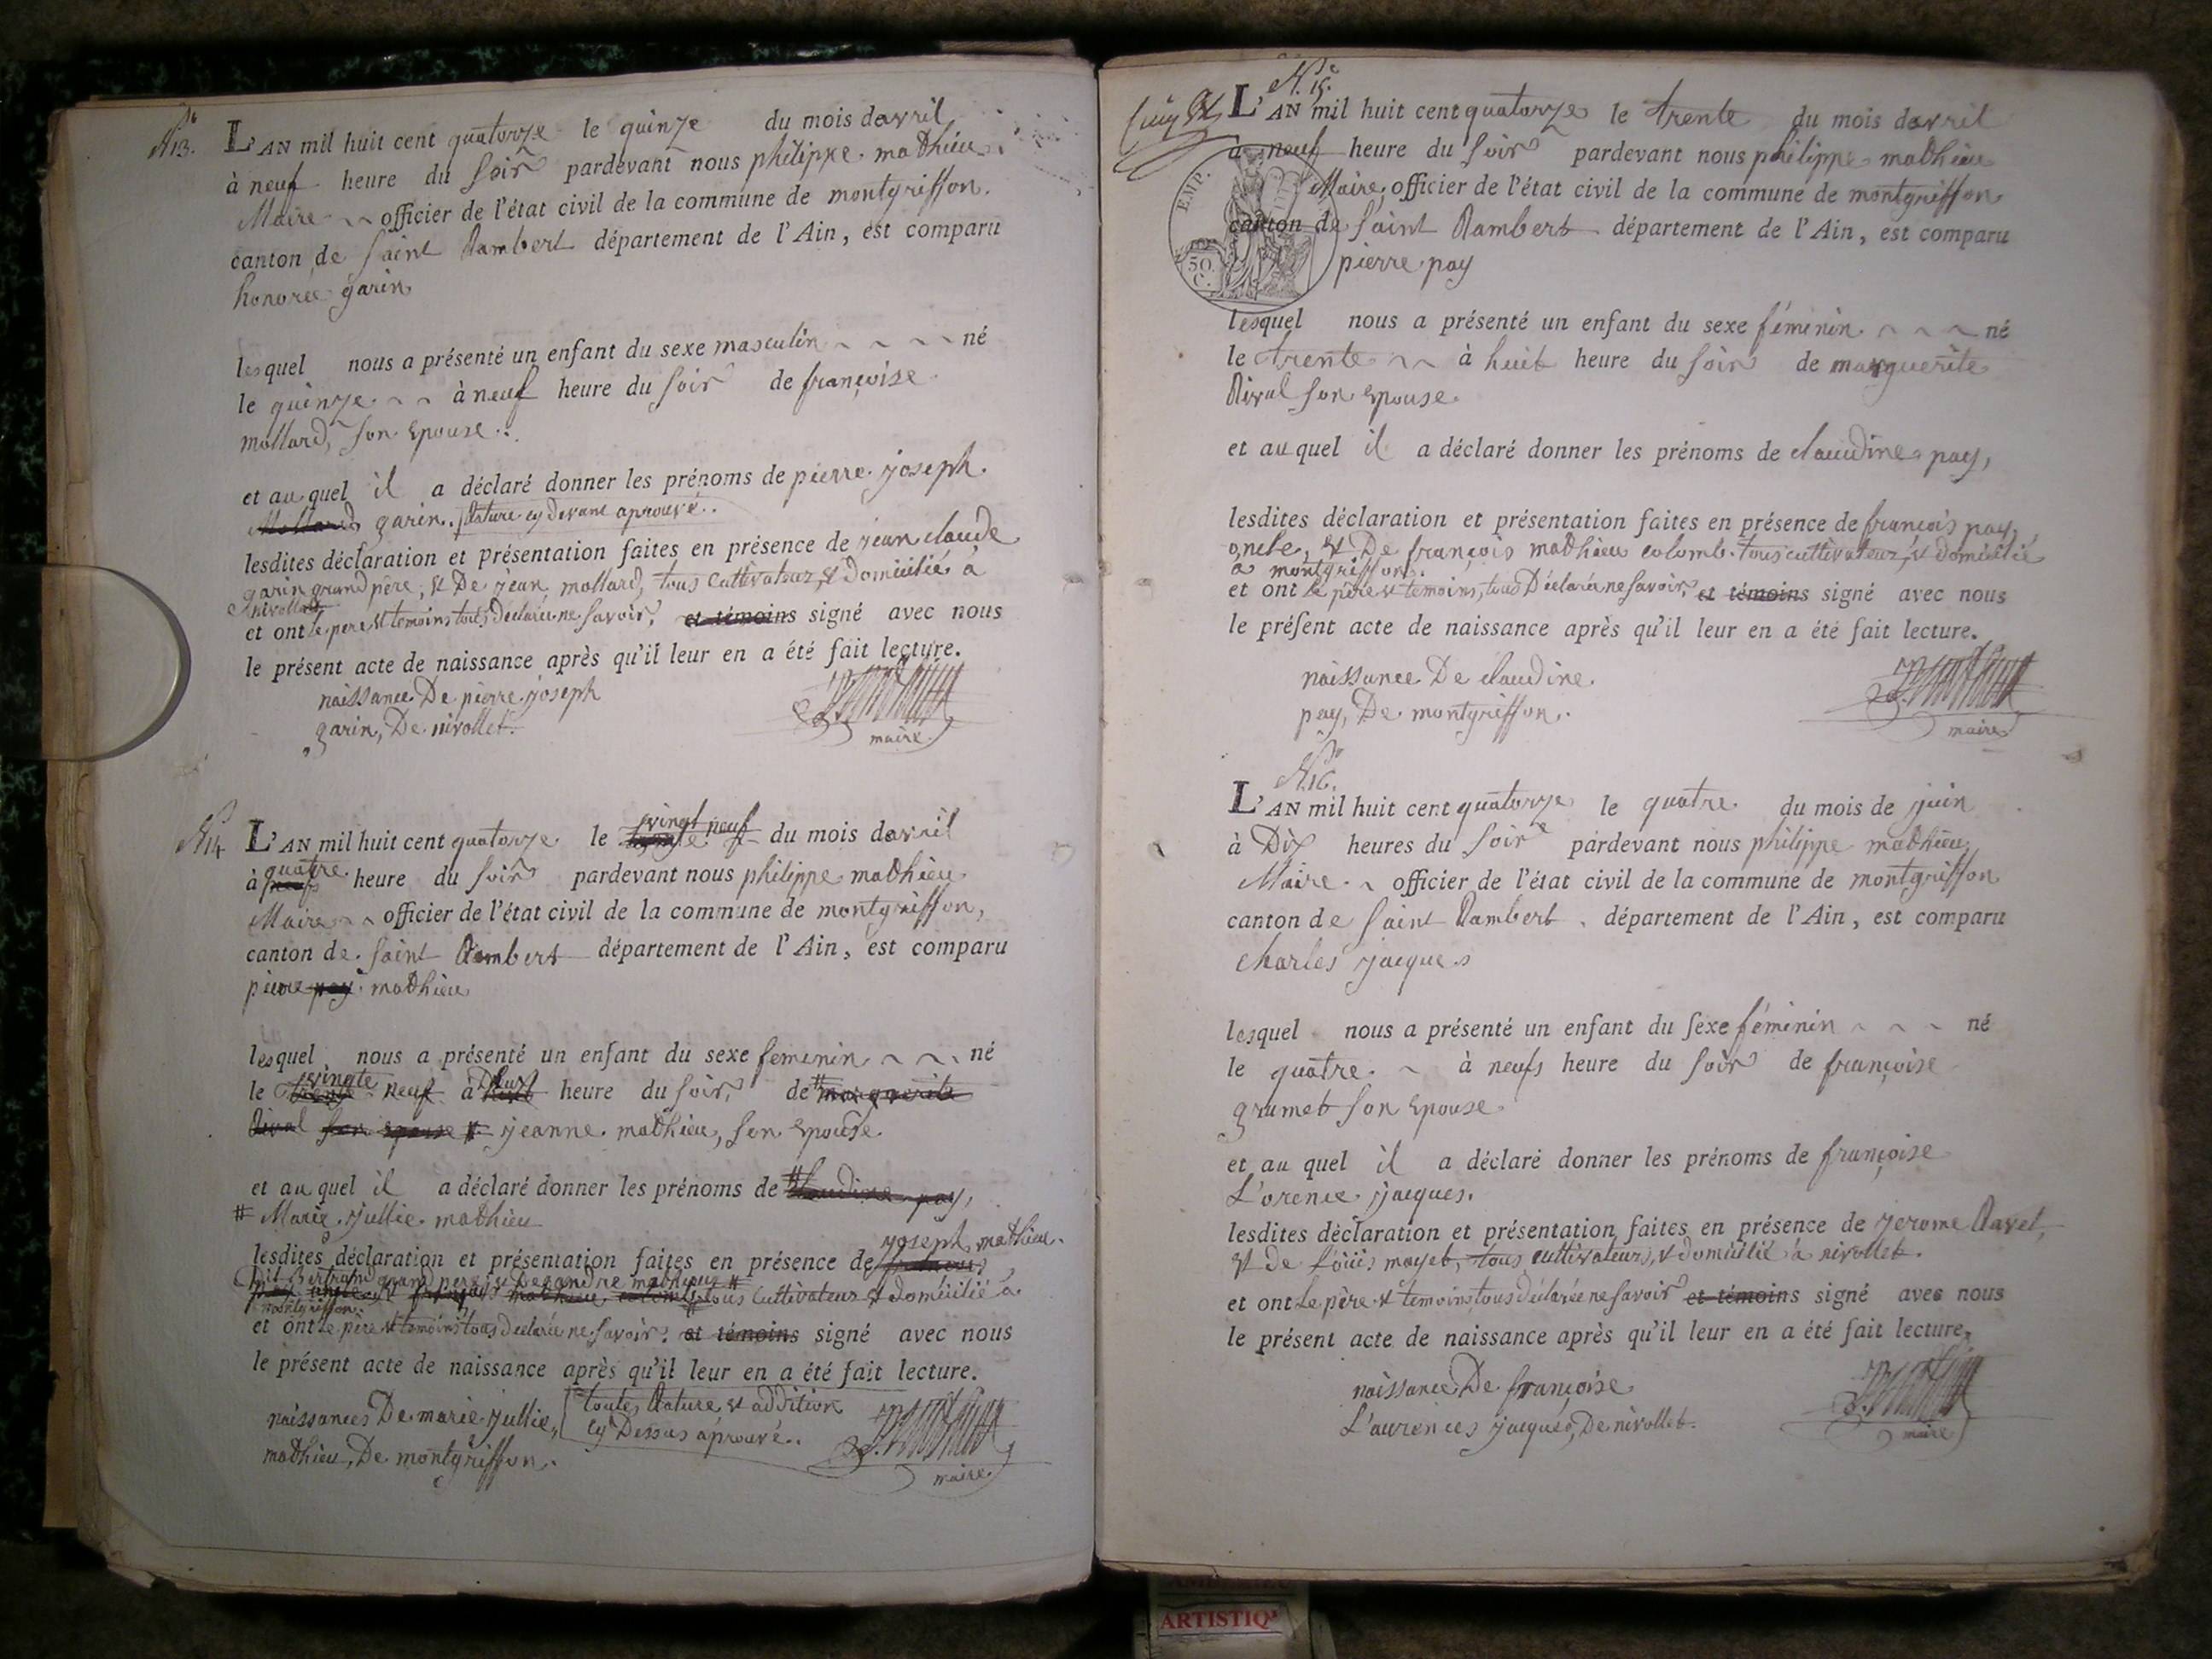 N° 13.
L'AN mil huit cent quatorze le quinze du mois davril
à neuf heure du soir pardevant nous philippe mathieu
Maire officier de l'état civil de la commune de montgriffon.
canton de saint Rambert département de l'Ain, est comparu
honoree garin
lesquel nous a présenté un enfant du sexe masculin né
le quinze à neuf heure du soir de françoise
mollard, son epouse.
et au quel il a déclaré donner les prénoms de pierre joseph.
Mollard garin. Rature cy devant aprouvé.
lesdites déclaration et présentation faites en présence de jean claude
garin grand père, et De jean mollard, tous Cultivateur, et domicilié à
nivollet
et ont le pere et temoins tous Déclarée ne savoir, et témoins signé avec nous
le présent acte de naissance après qu'il leur en a été fait lecture.
naissance De pierre joseph
garin, De nivollet.
maire
N° 14
L'AN mil huit cent quatorze le vingt neuf du mois davril
à quatre heure du soir pardevant nous philippe mathieu
Maire officier de l'état civil de la commune de montgriffon,
canton de saint Rambert département de l'Ain, est comparu
pierre pay mathieu
lesquel nous a présenté un enfant du sexe feminin né
le trente vingte neuf à Deux heure du soir, de # marguerite
Rival son epouse # jeanne mathieu, son epouse
et au quel il a déclaré donner les prénoms de # Claudine pay,
# Marie jullie mathieu
lesdites déclaration et présentation faites en présence de francois joseph mathieu
dit Bertrand grand pere, et De andre mathieu #
pay oncle, et françois mathieu colomb, # tous Cultivateur et domicilié à
montgriffon.
et ont Le père et temoins tous declarée ne savoir, et témoins signé avec nous
le présent acte de naissance après qu'il leur en a été fait lecture.
naissances De marie jullie,
mathieu, De montgriffon.
toutes Rature et addition
cy Dessus aprouvé.
maire
N° 15.
L'AN mil huit cent quatorze le trente du mois davril
à neuf heure du soir pardevant nous philippe mathieu
Maire, officier de l'état civil de la commune de montgriffon
canton de saint Rambert département de l'Ain, est comparu
pierre pay
EMP.
50
C.
lesquel nous a présenté un enfant du sexe féminin né
le trente à huit heure du soir de marguerite
Rival son epouse
et au quel il a déclaré donner les prénoms de claudine pay,
lesdites déclaration et présentation faites en présence de françois pay,
oncle, et De françois mathieu colomb. tous cultivateur, et domicilié
a montgriffon.
et ont le père et temoins, tous Déclarée ne savoir, et témoins signé avec nous
le présent acte de naissance après qu'il leur en a été fait lecture.
naissance De claudine
pay, De montgriffon.
maire
N° 16.
L'AN mil huit cent quatorze le quatre du mois de juin
à Dix heures du soir pardevant nous philippe mathieu
Maire officier de l'état civil de la commune de montgriffon
canton de saint Rambert département de l'Ain, est comparu
charles jacques
lesquel nous a présenté un enfant du sexe féminin né
le quatre à neufs heure du soir de françoise
grumet son epouse
et au quel il a déclaré donner les prénoms de françoise
L'orence jacques.
lesdites déclaration et présentation faites en présence de jerome Ravet,
et de Loüis moyet, tous cultivateurs, et domicilié à nivollet.
et ont Le père et temoins tous déclarée ne savoir et témoins signé avec nous
le présent acte de naissance après qu'il leur en a été fait lecture,
naissance De françoise
L'aurences jacques, De nivollet.
maire
ARTISTIQ